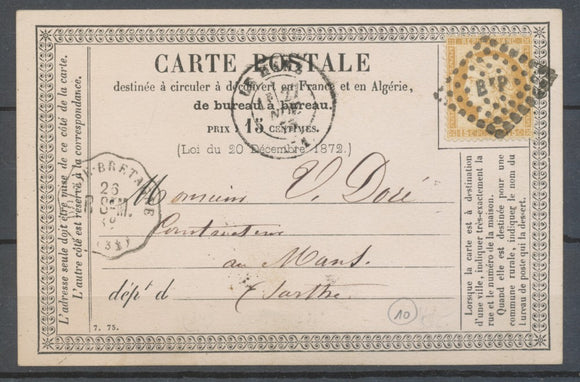 CARTE POSTALE
destinée à circuler à découvert en France et en Algérie,
de bureau à bureau.
PRIX : 15 CENTIMES.
(Loi du 20 Décembre 1872.)
Monsieur V. Doré
Constructeur
au Mans.
dépt d Sarthe
L'adresse seule doit être mise de ce côté de la carte.
L'autre côté est réservé à la correspondance.
Lorsque la carte est à destination
d'une ville, indiquer très-exactement la
rue et le numéro de la maison.
Quand elle est destinée pour une
commune rurale, indiquer le nom du
bureau de poste qui la dessert.
7. 75.
10
LE MANS
27
NOV.
BYP
BRETAGNE
26